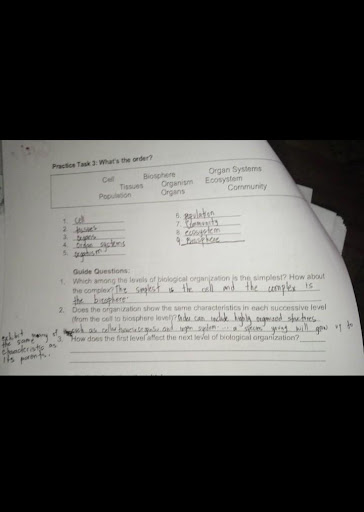 Practice Task 3: What's the order?
Cell Biosphere Organ Systems
Tissues Organism Ecosystem
Population Organs Community
1. cell
2. tissues
3. organs
4. organ systems
5. organism
6. population
7. community
8. ecosystem
9. biosphere
Guide Questions:
1. Which among the levels of biological organization is the simplest? How about
the complex? The simplest is the cell and the complex is
the biosphere.
2. Does the organization show the same characteristics in each successive level
(from the cell to biosphere level)? Order can include highly organized structures
such as cells, and organ system. young will grow up to
exhibit many of
the same
characteristic as
its parents.
3. How does the first level affect the next level of biological organization?